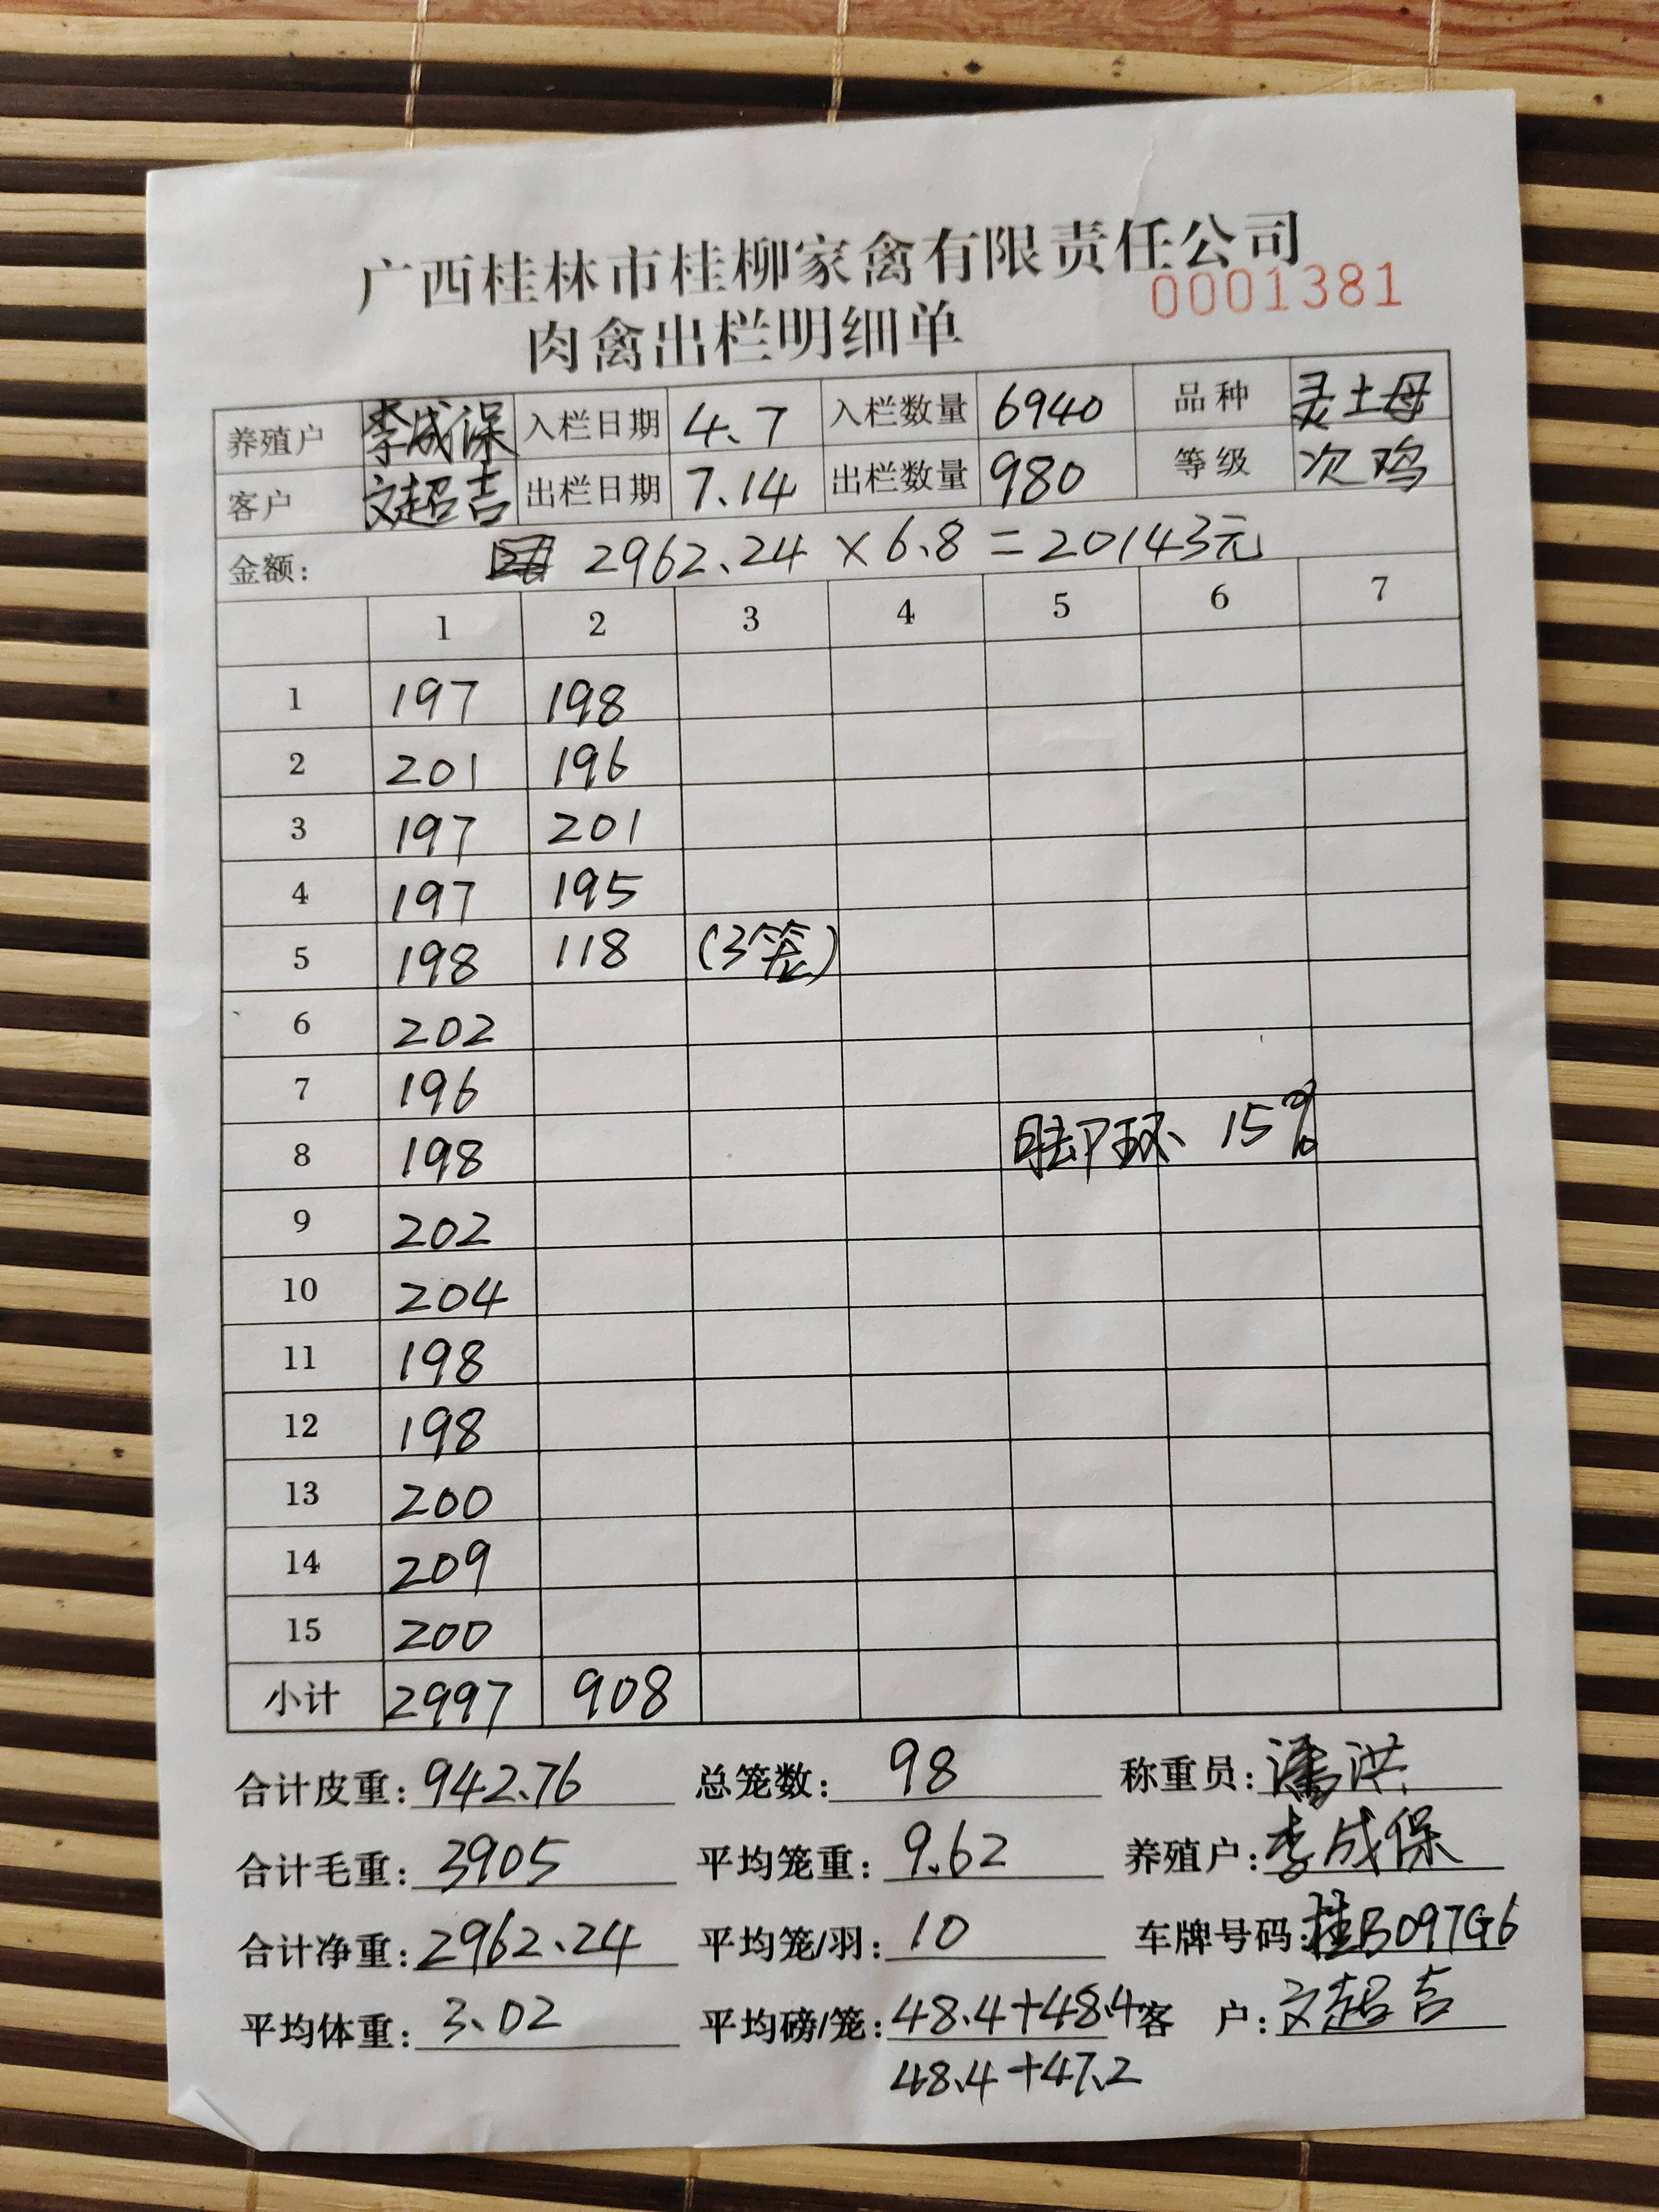 广西桂林市桂柳家禽有限责任公司
0001381
肉禽出栏明细单
养殖户 李成保 入栏日期 4.7 入栏数量 6940 品种 灵土母
客户 文超吉 出栏日期 7.14 出栏数量 980 等级 次鸡
金额: 2962.24 × 6.8 = 20143元
1 2 3 4 5 6 7
1 197 198
2 201 196
3 197 201
4 197 195
5 198 118 (3笼)
6 202
7 196
8 198 脚环 15%
9 202
10 204
11 198
12 198
13 200
14 209
15 200
小计 2997 908
合计皮重: 942.76 总笼数: 98 称重员: 潘洪
合计毛重: 3905 平均笼重: 9.62 养殖户: 李成保
合计净重: 2962.24 平均笼/羽: 10 车牌号码: 桂B097G6
平均体重: 3.02 平均磅/笼: 48.4+48.4 客 户: 文超吉
48.4+47.2